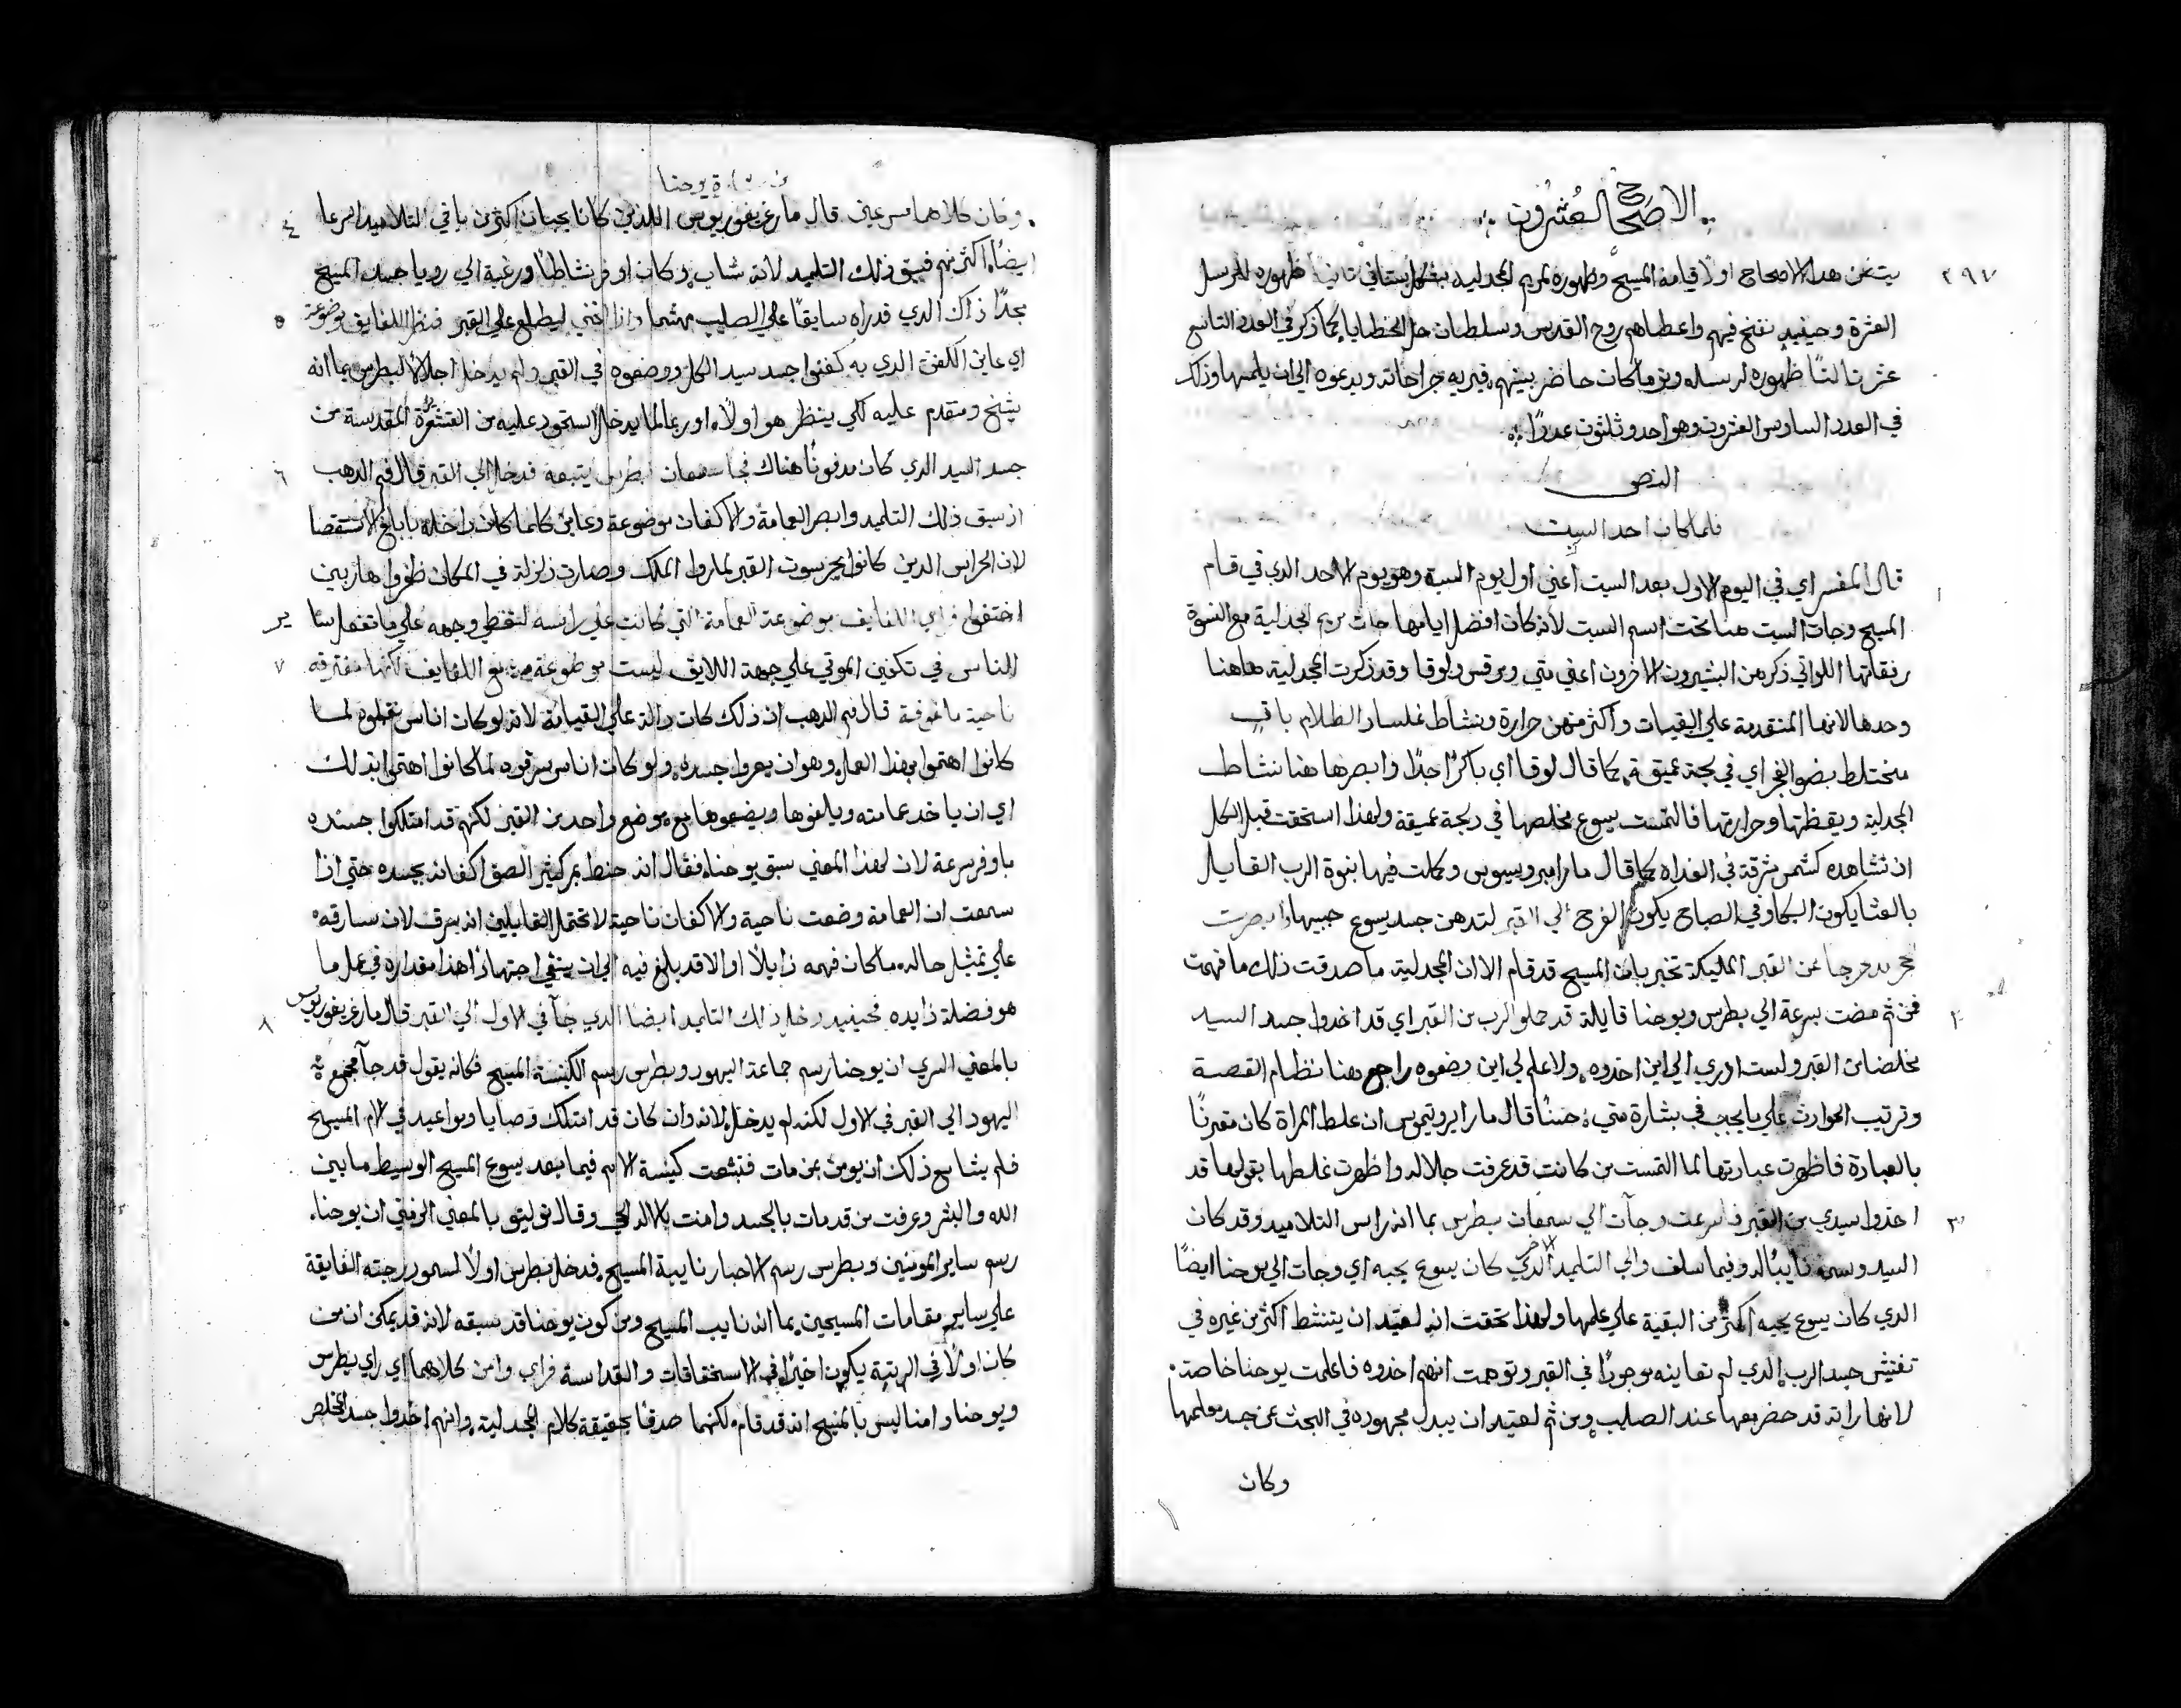 الاصحاح العشرون
٢٩٧
يتضمن هدا الاصحاح اولًا قيامة المسيح وظهوره لمريم المجدلية بشكل بستاني ثانيا ظهوره للرسل
العشرة وحينيدٍ نفخ فيهم واعطاهم روح القدس وسلطان حل الخطايا كما ذكر في العدد التاسع
عشر ثالثًا ظهوره لرسله وتوما كان حاضر بينهم فيريه جراحاته ويدعوه الي ان يلمسها وذلك
في العدد السادس العشرون وهو احد وثلثون عددًا
النص
فلما كان احد السبت
١
قال المفسر اي في اليوم الاول بعد السبت اعني اول يوم السبة وهو يوم الاحد الدي في قام
المسيح وجات السبت هنا تحت اسم السبت لانه كان افضل ايامها جات مريم المجدلية مع النسوة
رفقاتها اللواتي ذكرهن البشيرون الاخرون اعني متي ومرقس ولوقا وقد ذكرت المجدلية هاهنا
وحدها لانها المتقدمة علي البقيات واكثر منهن حرارة ونشاط غلسا والظلام باقٍ
مختلط بضو الفجر اي في لجة عميقة كما قال لوقا اي باكرًا جدًا وابصرها هنا نشاط
المجدلية ويقظتها وحرارتها فالتمست يسوع مخلصها في دلجة عميقة ولهذا استحقت قبل الكل
ان تشاهده كشمس مشرقة في الغداة كما قال مار امبروسيوس وكملت فيها نبوة الرب القايل
بالعشا يكون البكا وفي الصباح يكون الفرح الي القبر لتدهن جسد يسوع حبيبها وابصرت
الحجر مدحرجا عن القبر المليكة تخبر بان المسيح قد قام الا ان المجدلية ما صدقت ذلك ما فهمت
٢
فمن ثم مضت بسرعة الي بطرس ويوحنا قايلة قد حملو الرب من القبر اي قد اخدوا جسد السيد
مخلصنا من القبر ولست ادري الي اين اخدوه ولا علم لي اين وضعوه راجع هنا نظام القصة
وترتيب الحوادث علي ما يجب في بشارة متي حسنًا قال مار ايرونيموس ان غلط المراة كان مقترنًا
بالعبادة فاظهرت عبادتها لما التمست من كانت قد عرفت جلاله واظهرت غلطها بقولها قد
٣
اخذوا سيدي من القبر فاسرعت وجآت الي سمعان بطرس بما انه راس التلاميد وقد كان
السيد وسمه نايبًا له فيما سلف والي التلميد الاخر الدي كان يسوع يحبه اي وجات الي يوحنا ايضًا
الدي كان يسوع يحبه اكثر من البقية علي علمها ولهذا تحققت انه لعتيد ان يتنشط اكثر من غيره في
تفتيش جسد الرب الدي لم تعاينه موجودًا في القبر وتوهمت انهم اخدوه فاعلمت يوحنا خاصة
لانها راته قد حضر معها عند الصليب ومن ثم لعتيد ان يبدل مجهوده في البحث عن جسد معلمها
وكان
من بشارة يوحنا
٤
وكان كلاهما مسرعين قال مار غريغوريوس اللذين كانا يحبان اكثر من باقي التلاميد اسرعا
ايضًا اكثر منهم فسبق ذلك التلميد لانه شاب وكان اوفر نشاطًا ورغبة الي رويا جسد المسيح
٥
مجدًا ذاك الدي قد راه سابقًا علي الصليب مهشما واذا انحني ليطلع علي القبر فنظر اللفايف موضوعة
اي عاين الكفن الدي به كفنوا جسد سيد الكل ووضعوه في القبر ولم يدخل اجلالًا لبطرس بما انه
شيخ ومتقدم عليه لكي ينظر هو اولًا او ربما لما يدخل استحود عليه من القشعرة المقدسة من
٦
جسد السيد الدي كان مدفونًا هناك فجا سمعان بطرس يتبعه فدخل الي القبر قال فم الدهب
اذ سبق ذلك التلميد وابصر العمامة والاكفان موضوعة وعاين كلما كان داخله بابلغ الاستقصا
لان الحراس الدين كانوا يحرسون القبر لما راوا الملك وصارت زلزلة في المكان طفروا هاربين
اختفوا وراي اللفايف موضوعة العمامة التي كانت علي راسه لتغطي وجهه علي ما تفعل سا ير
٧
الناس في تكفين الموتي علي جهة اللايق ليست موضوعة مع اللفايف لكنها مفترقه
ناحية ملفوفة قال فم الدهب ان ذلك كان دالة علي القيامة لانه لو كان اناس نقلوه لما
كانوا اهتموا بهذا العمل وهو ان يعروا جسده ولو كان اناس سرقوه لما كانوا اهتموا بذلك
اي ان ياخد عمامته ويلفوها ويضعوها مع موضع واحد من القبر لكنهم قد امتلكوا جسده
باوفر سرعة لان لهذا المعني سبق يوحنا فقال انه حنط بمر كثير الصق اكفانه بجسده حتي اذا
سمعت ان العمامة وضعت ناحية والاكفان ناحية لا تحتمل القايلين انه سرق لان سارقه
علي تمثيل حاله ما كان فهمه زايلًا او الا قد بلغ فيه الي ان ينفي اجتهادًا هذا مقداره في عمل ما
٨
هو فضلة زايده فحينيد دخل ذلك التلميد ايضا الدي جآ في الاول الي القبر قال مار غريغوريوس
بالمعني السري ان يوحنا رسم جماعة اليهود وبطرس رسم الكنيسة المسيح فكانه يقول قد جآ مجمع
اليهود الي القبر في الاول لكنه لم يدخل لانه وان كان قد امتلك وصايا ومواعيد في الام المسيح
فلم يشا مع ذلك ان يومن بمن مات فنبعت كنيسة الامم فيما بعد يسوع المسيح الوسيط ما بين
الله والبشر وعرفت من قد مات بالجسد وامنت بالاله الحي وقال توليتو بالمعني الرمزي ان يوحنا
رسم ساير المومنين وبطرس رسم الاحبار نايبة المسيح فدخل بطرس اولًا لسمو درجته الفايقة
علي ساير مقامات المسيحيين بما انه نايب المسيح ومن كون يوحنا قد سبقه لانه قد يمكن ان من
كان اولًا في الرتبة يكون اخيرًا في الاستحقاقات والقداسة فراي وامن كلاهما اي راي بطرس
ويوحنا وامنا ليس بالمسيح انه قد قام لكنهما صدقا بحقيقة كلام المجدلية وانهم اخدوا جسد المخلص